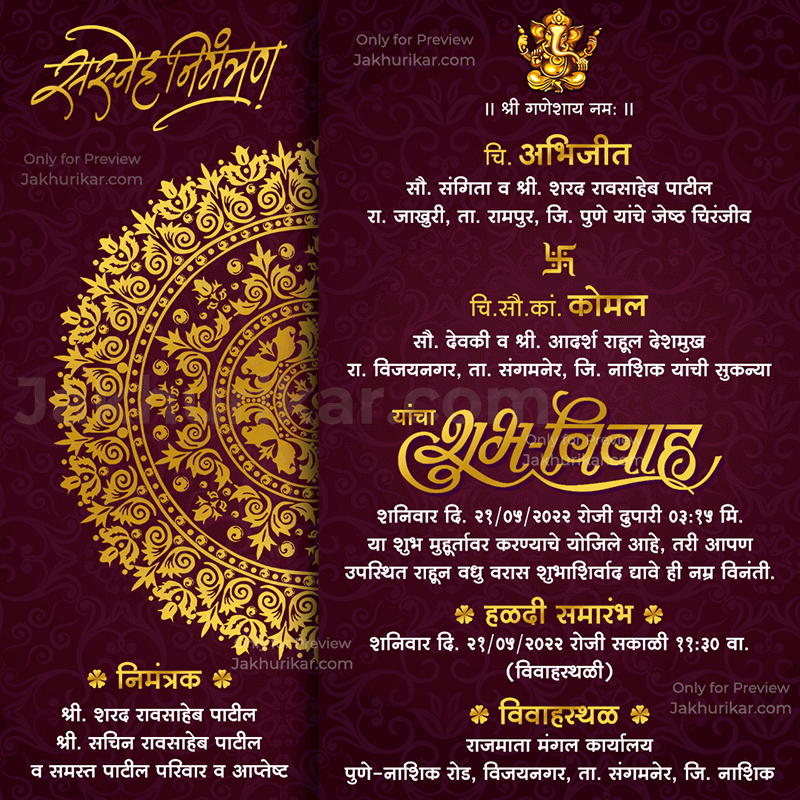 सस्नेह निमंत्रण
Only for Preview
Jakhurikar.com
Only for Preview
Jakhurikar.com
॥ श्री गणेशाय नमः ॥
चि. अभिजीत
सौ. संगिता व श्री. शरद रावसाहेब पाटील
रा. जाखुरी, ता. रामपुर, जि. पुणे यांचे जेष्ठ चिरंजीव
चि.सौ.कां. कोमल
सौ. देवकी व श्री. आदर्श राहूल देशमुख
रा. विजयनगर, ता. संगमनेर, जि. नाशिक यांची सुकन्या
Jakhurikar.com
यांचा शुभ-विवाह
Only for Preview
Jakhurikar.com
शनिवार दि. २१/०५/२०२२ रोजी दुपारी ०३:१५ मि.
या शुभ मुहूर्तावर करण्याचे योजिले आहे, तरी आपण
उपस्थित राहून वधु वरास शुभाशिर्वाद द्यावे ही नम्र विनंती.
हळदी समारंभ
शनिवार दि. २१/०५/२०२२ रोजी सकाळी ११:३० वा.
(विवाहस्थळी)
विवाहस्थळ
राजमाता मंगल कार्यालय
पुणे-नाशिक रोड, विजयनगर, ता. संगमनेर, जि. नाशिक
Only for Preview
Jakhurikar.com
Only for Preview
Jakhurikar.com
निमंत्रक
श्री. शरद रावसाहेब पाटील
श्री. सचिन रावसाहेब पाटील
व समस्त पाटील परिवार व आप्तेष्ट